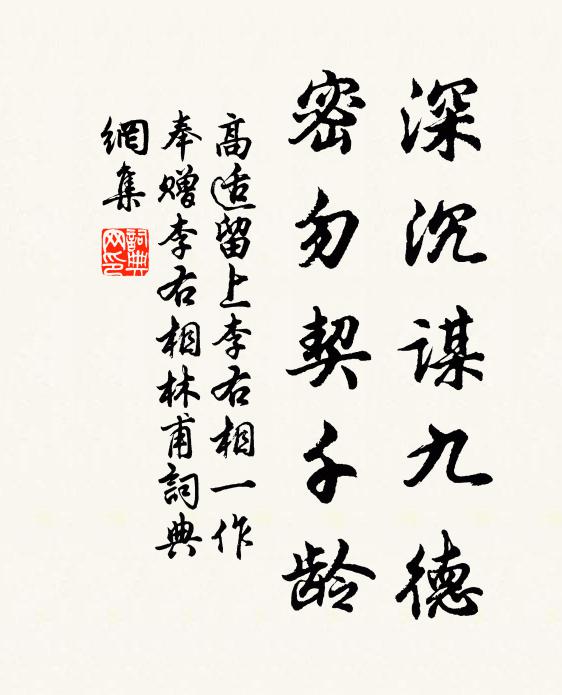 深沉谋九德
密勿契千龄
高适留上李右相一作
奉赠李右相林甫詞典
網集
詞典
网印